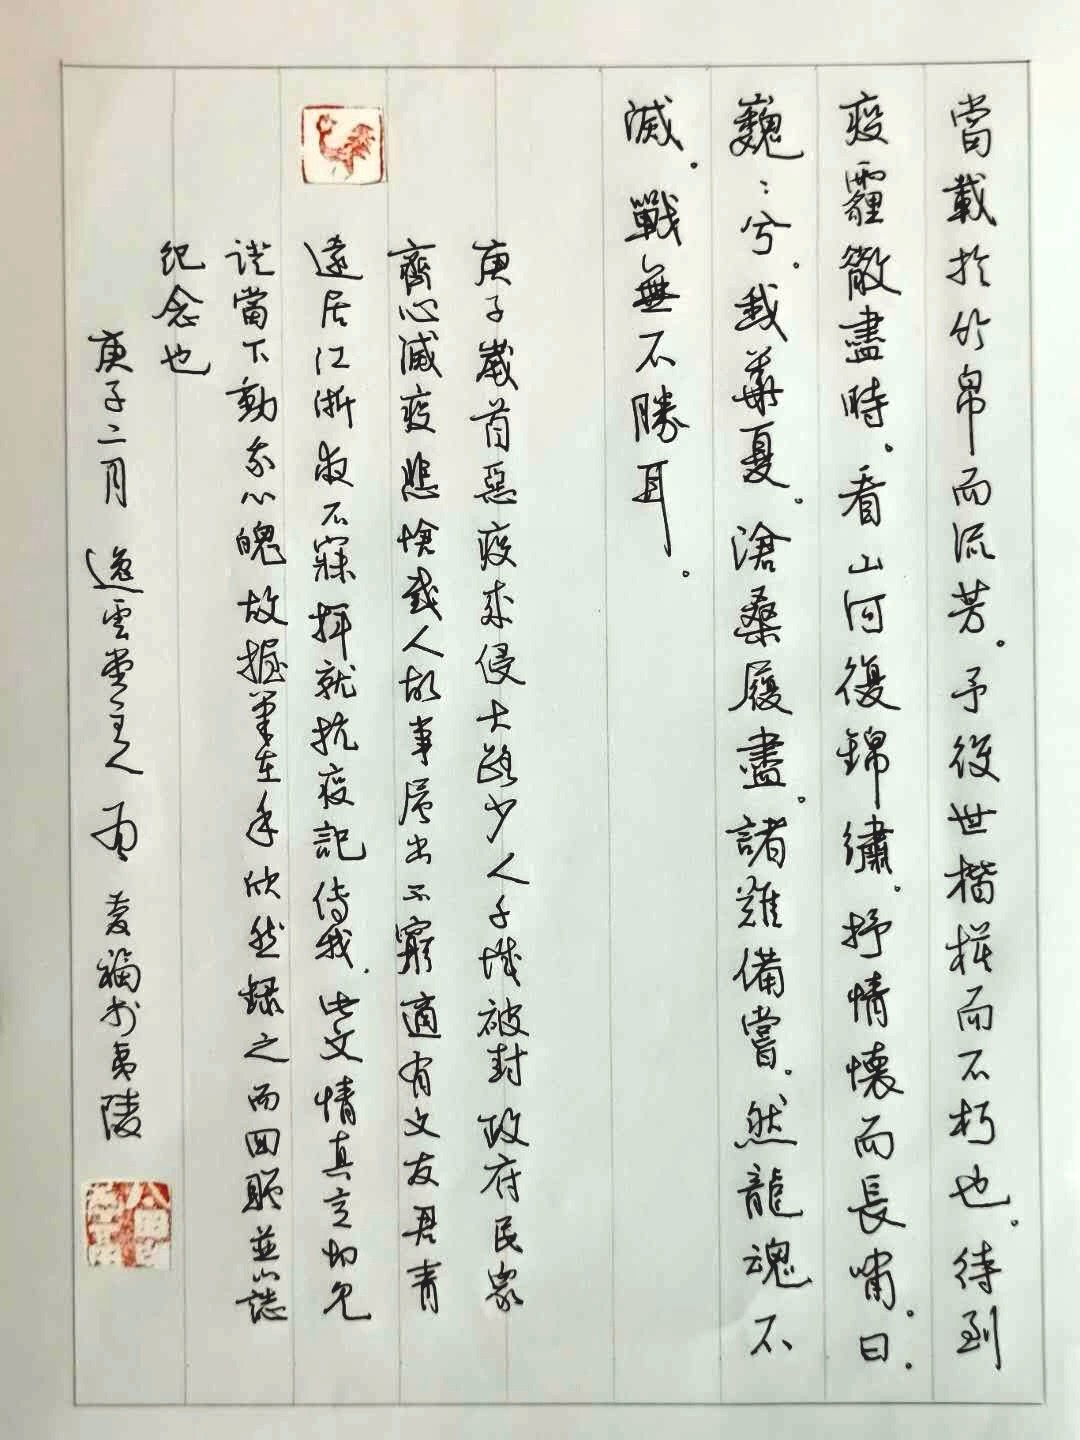 當載於竹帛而流芳。予後世楷模而不朽也。待到
疫霾散盡時。看山河復錦繡。抒情懷而長嘯。曰。
巍：兮。我華夏。滄桑履盡。諸難備嘗。然龍魂不
滅。戰無不勝耳。
庚子歲首惡疫來侵大路少人千城被封政府民眾
齊心滅疫悲愴感人故事層出不窮適有文友君青
遠居江浙夜不寐揮就抗疫記傳我。此文情真意切見
證當下動余心魄故握筆在手欣然錄之而回贈並以誌
紀念也
庚子二月 逸雲堂主人 於夷陵